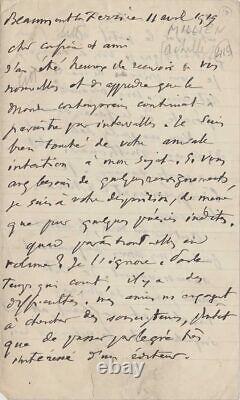 Beaumont la Ferrière 11 avril 1919
MILLIEN
(Achille)
cher confrère et ami
J'ai été heureux de recevoir de vos
nouvelles et d'apprendre que le
Monde contemporain continuait à
paraître par intervalles. Je suis
bien touché de votre amicale
intention à mon sujet. Si vous
avez besoin de quelques renseignements,
je suis à votre disposition, de même
que pour quelques poésies inédites.
quand paraîtront-elles en
volume? Je l'ignore. Par le
temps qui court, il y a des
difficultés. mes amis m'engagent
à chercher des souscripteurs, plutôt
que de passer par les griffes
intéressé d'un éditeur.
© ebay